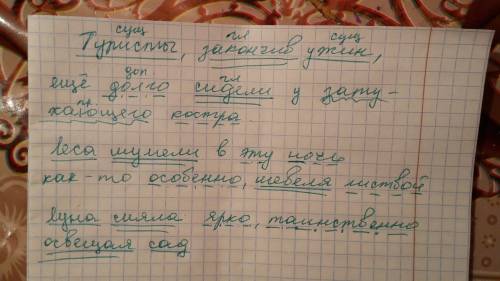 сущ гл сущ
Туристы, закончив ужин,
доп гл
ещё долго сидели у зату-
хающего костра
Леса шумели в эту ночь
как-то особенно, шевеля листвой
Луна сияла ярко, таинственно
освещая сад